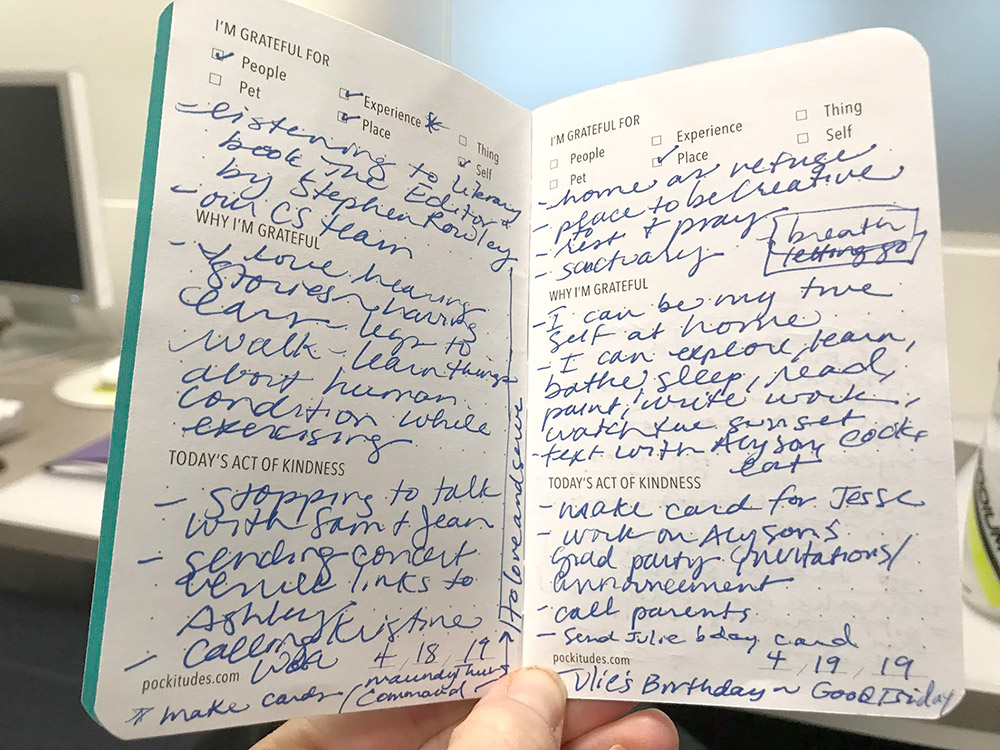 I'M GRATEFUL FOR
People
Experience
Thing
Pet
Place
Self
- listening to literary
book The Editor
by Stephen Rowley
- our CS team
WHY I'M GRATEFUL
- I love hearing
stories, having
legs to
walk - learn things
about human
condition while
exercising
TODAY'S ACT OF KINDNESS
- stopping to talk
with Sam + Jean
- sending concert
venue links to
Ashley
- calling Kristine
4 18 19
pockitudes.com
Maundy Thurs
* make cards (command
→ to love and serve
I'M GRATEFUL FOR
People
Experience
Thing
Pet
Place
Self
- home as refuge
- place to be creative
- to rest + pray
- sanctuary
breath
letting go
WHY I'M GRATEFUL
- I can be my true
self at home
- I can explore, learn,
bathe, sleep, read,
paint, write work,
watch the sunset
- text with Alyson, cook,
eat
TODAY'S ACT OF KINDNESS
- make card for Jesse
- work on Alysons
grad party invitations/
announcement
- call parents
- send Julie bday card
4 19 19
pockitudes.com
Birthday ~ Good Friday